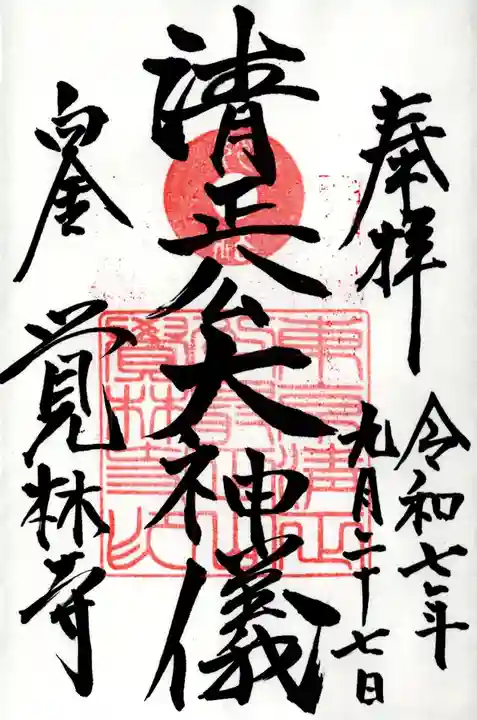 奉拝
令和七年
九月二十七日
清正公大神儀
白金
覚林寺